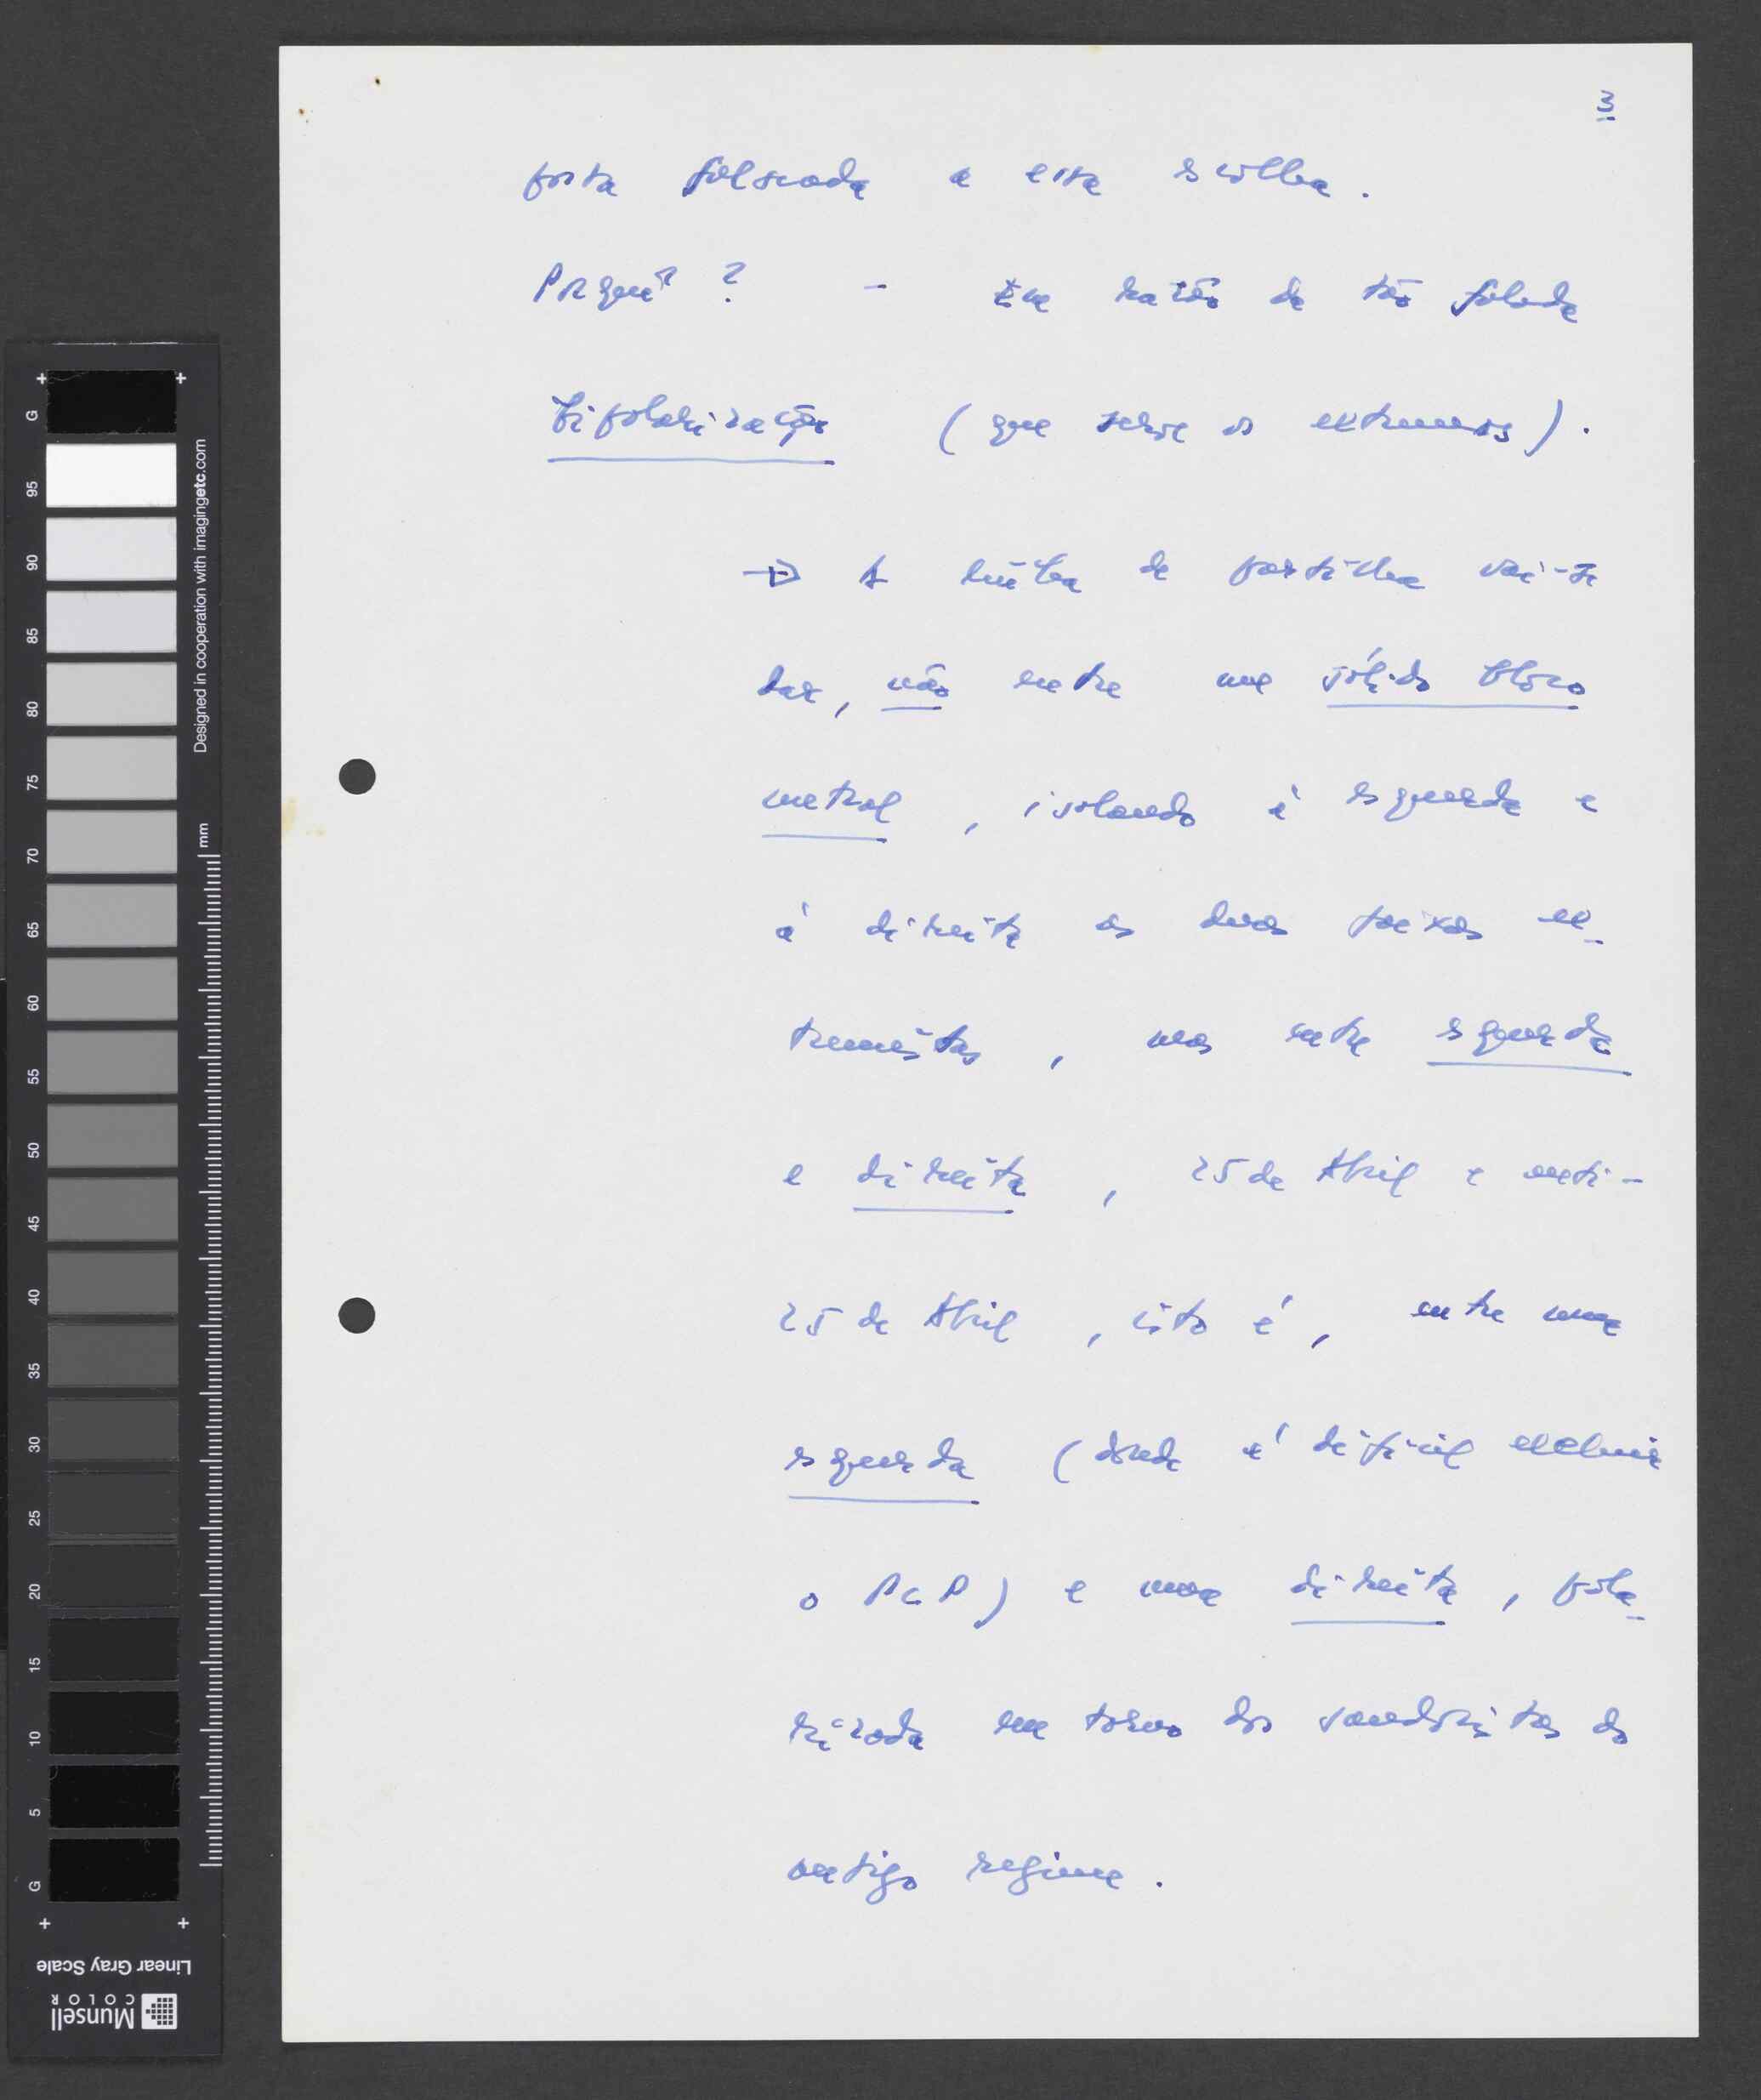 3
posta falseada a essa escolha.
Porquê? - Em razão da tão falada
bipolarização (que serve os extremos).
→ A linha de partilha vai-se
dar, não entre um sólido bloco
central, isolando à esquerda e
à direita as duas faixas ex-
tremistas, mas entre esquerda
e direita, 25 de Abril e anti-
25 de Abril, isto é, entre uma
esquerda (donde é difícil excluir
o PCP) e uma direita, pola-
rizada em torno dos saudosistas do
antigo regime.
G
95
90
85
80
75
70
65
60
55
50
45
40
35
30
25
20
15
10
5
G
mm
Designed in cooperation with imagingetc.com
Linear Gray Scale
Munsell
COLOR